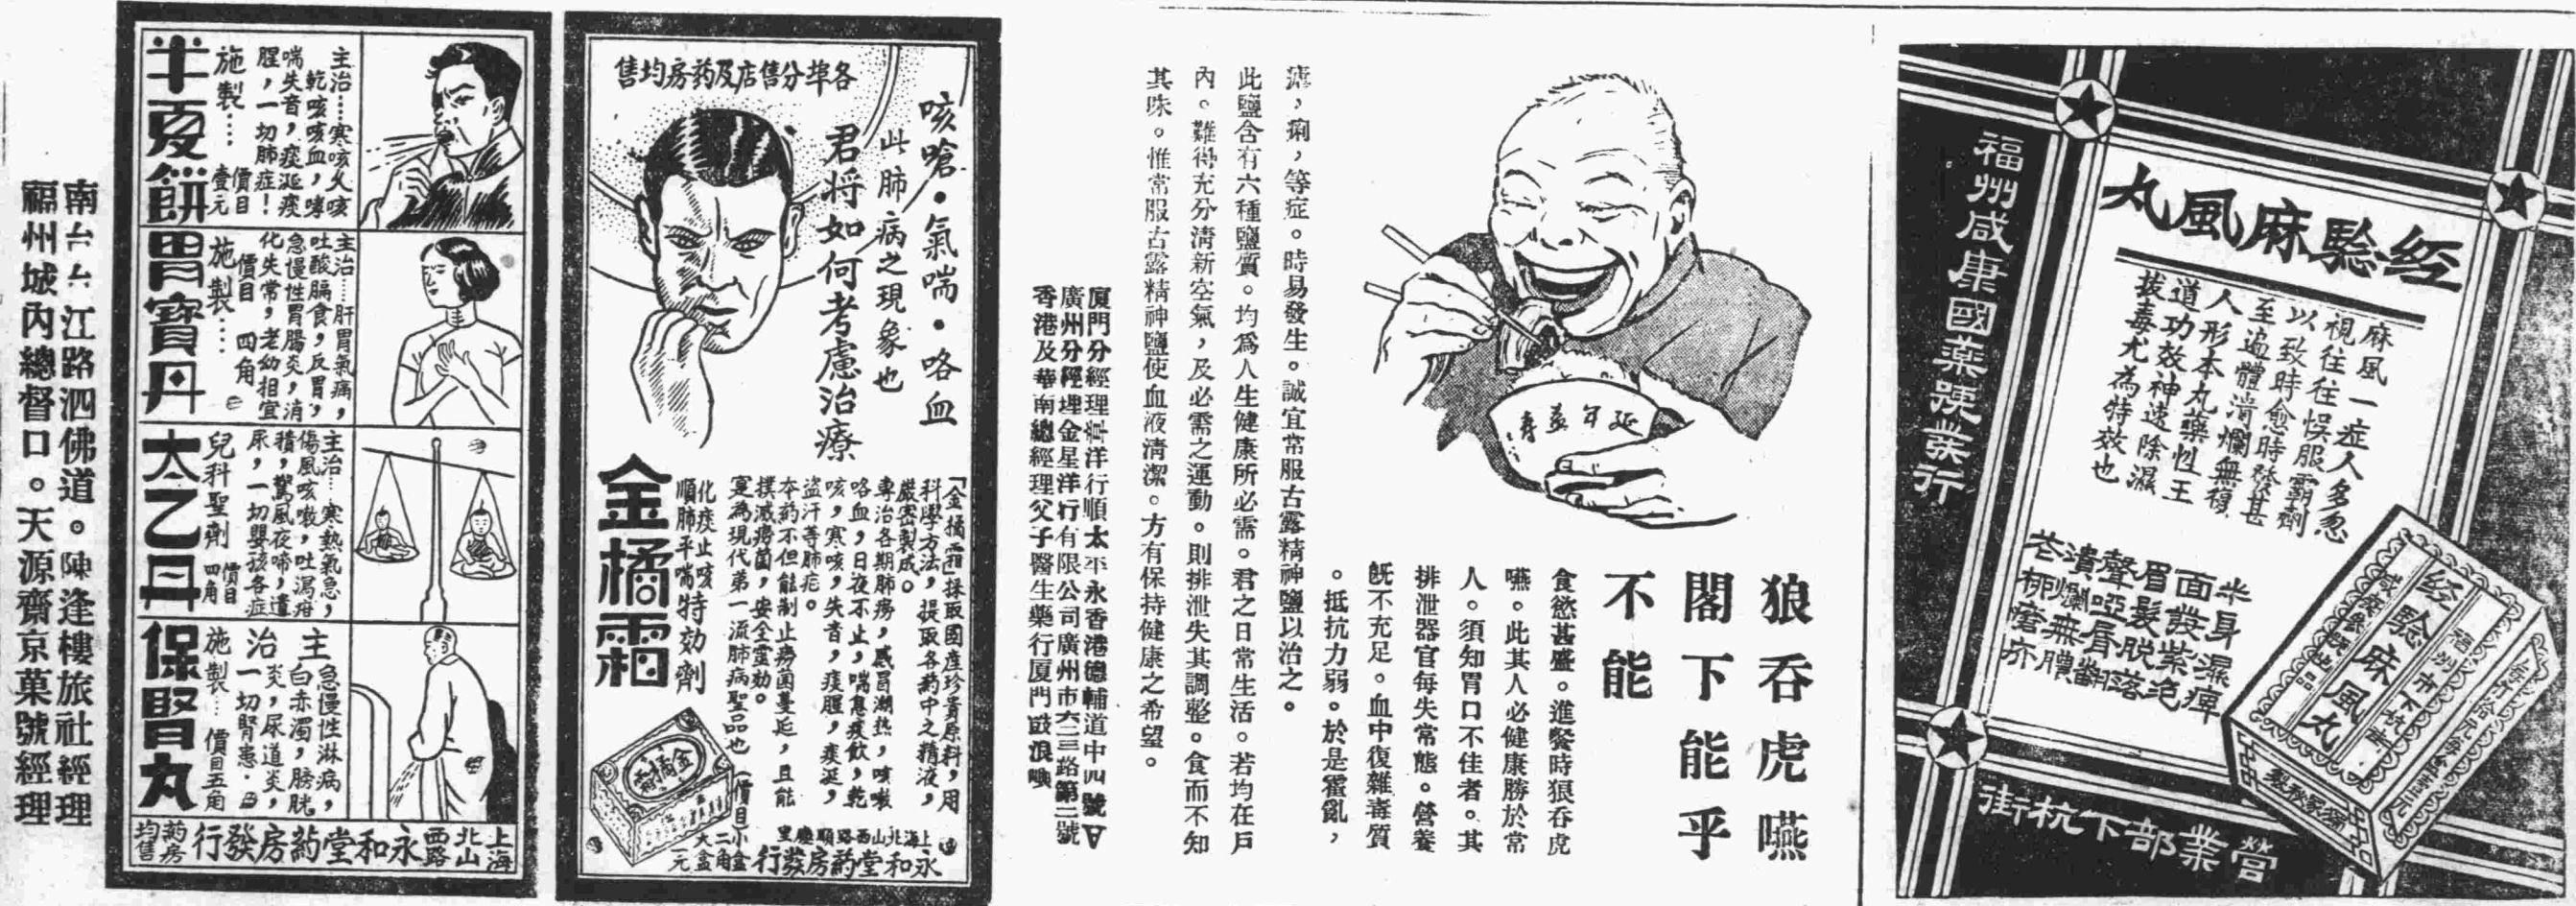 福州咸康國藥號業行
經驗麻風丸
麻風一症人多忽
視往往悞服霸劑
以致時愈時發甚
至遍體消爛無復
人形本丸藥性王
道功效神速除濕
拔毒尤為特效也
半身濕痺
面發紫泡
眉髮脫落
聲啞唇翻
潰爛無膿
經驗麻風丸
營業部下杭街
狼吞虎嚥
閣下能乎
不能
食慾甚盛。進餐時狼吞虎
嚥。此其人必健康勝於常
人。須知胃口不佳者。其
排泄器官每失常態。營養
旣不充足。血中復雜毒質
。抵抗力弱。於是霍亂,
瘧,痢,等症。時易發生。誠宜常服古露精神鹽以治之。
此鹽含有六種鹽質。均為人生健康所必需。君之日常生活。若均在戶
內。難得充分清新空氣,及必需之運動。則排泄失其調整。食而不知
其味。惟常服古露精神鹽使血液清潔。方有保持健康之希望。
延年益壽
厦門分經理章洋行順太平永香港德輔道中四號▽
廣州分經理金星洋行有限公司廣州市六二三路第二號
香港及華南總經理父子醫生藥行厦門鼓浪嶼
各埠分售店及葯房均售
咳嗆·氣喘·咯血
此肺病之現象也
君將如何考慮治療
金橘霜
化痰止咳
順肺平喘特効劑
「金橘霜」採取國產珍貴原料,用
科學方法,提取各葯中之精液,
嚴密製成。
專治各期肺癆,感冒潮热,咳嗽
咯血,日夜不止,喘息痰飲,乾
咳,寒咳,失音,痰腥,痰涎,
盜汗等肺疕。
本葯不但能制止癆菌蔓延,且能
撲滅癆菌,安全靈効。
寔為現代第一流肺病聖品也
價目小盒二角大盒一元
金橘霜
上海北山西路順慶里
永和堂葯房發行
半夏餅
主治……寒咳火咳
乾咳咳血,哮
喘失音,痰涎痰
腥,一切肺症!
施製…… 價目壹元
胃寶丹
主治……肝胃氣痛,
吐酸膈食,反胃,
急慢性胃腸炎,消
化失常,老幼相宜
施製…… 價目四角
太乙丹
主治…寒熱氣急,
傷風咳嗽,吐瀉疳
積,驚風夜啼,遺
尿,一切嬰孩各症
兒科聖劑 價目四角
保腎丸
主治
急慢性淋病,
白赤濁,膀胱
炎,尿道炎,
一切腎患.
施製… 價目五角
上海北山西路永和堂葯房發行
葯房均售
南台台江路泗佛道。陳逢樓旅社經理
福州城內總督口。天源齋京菓號經理